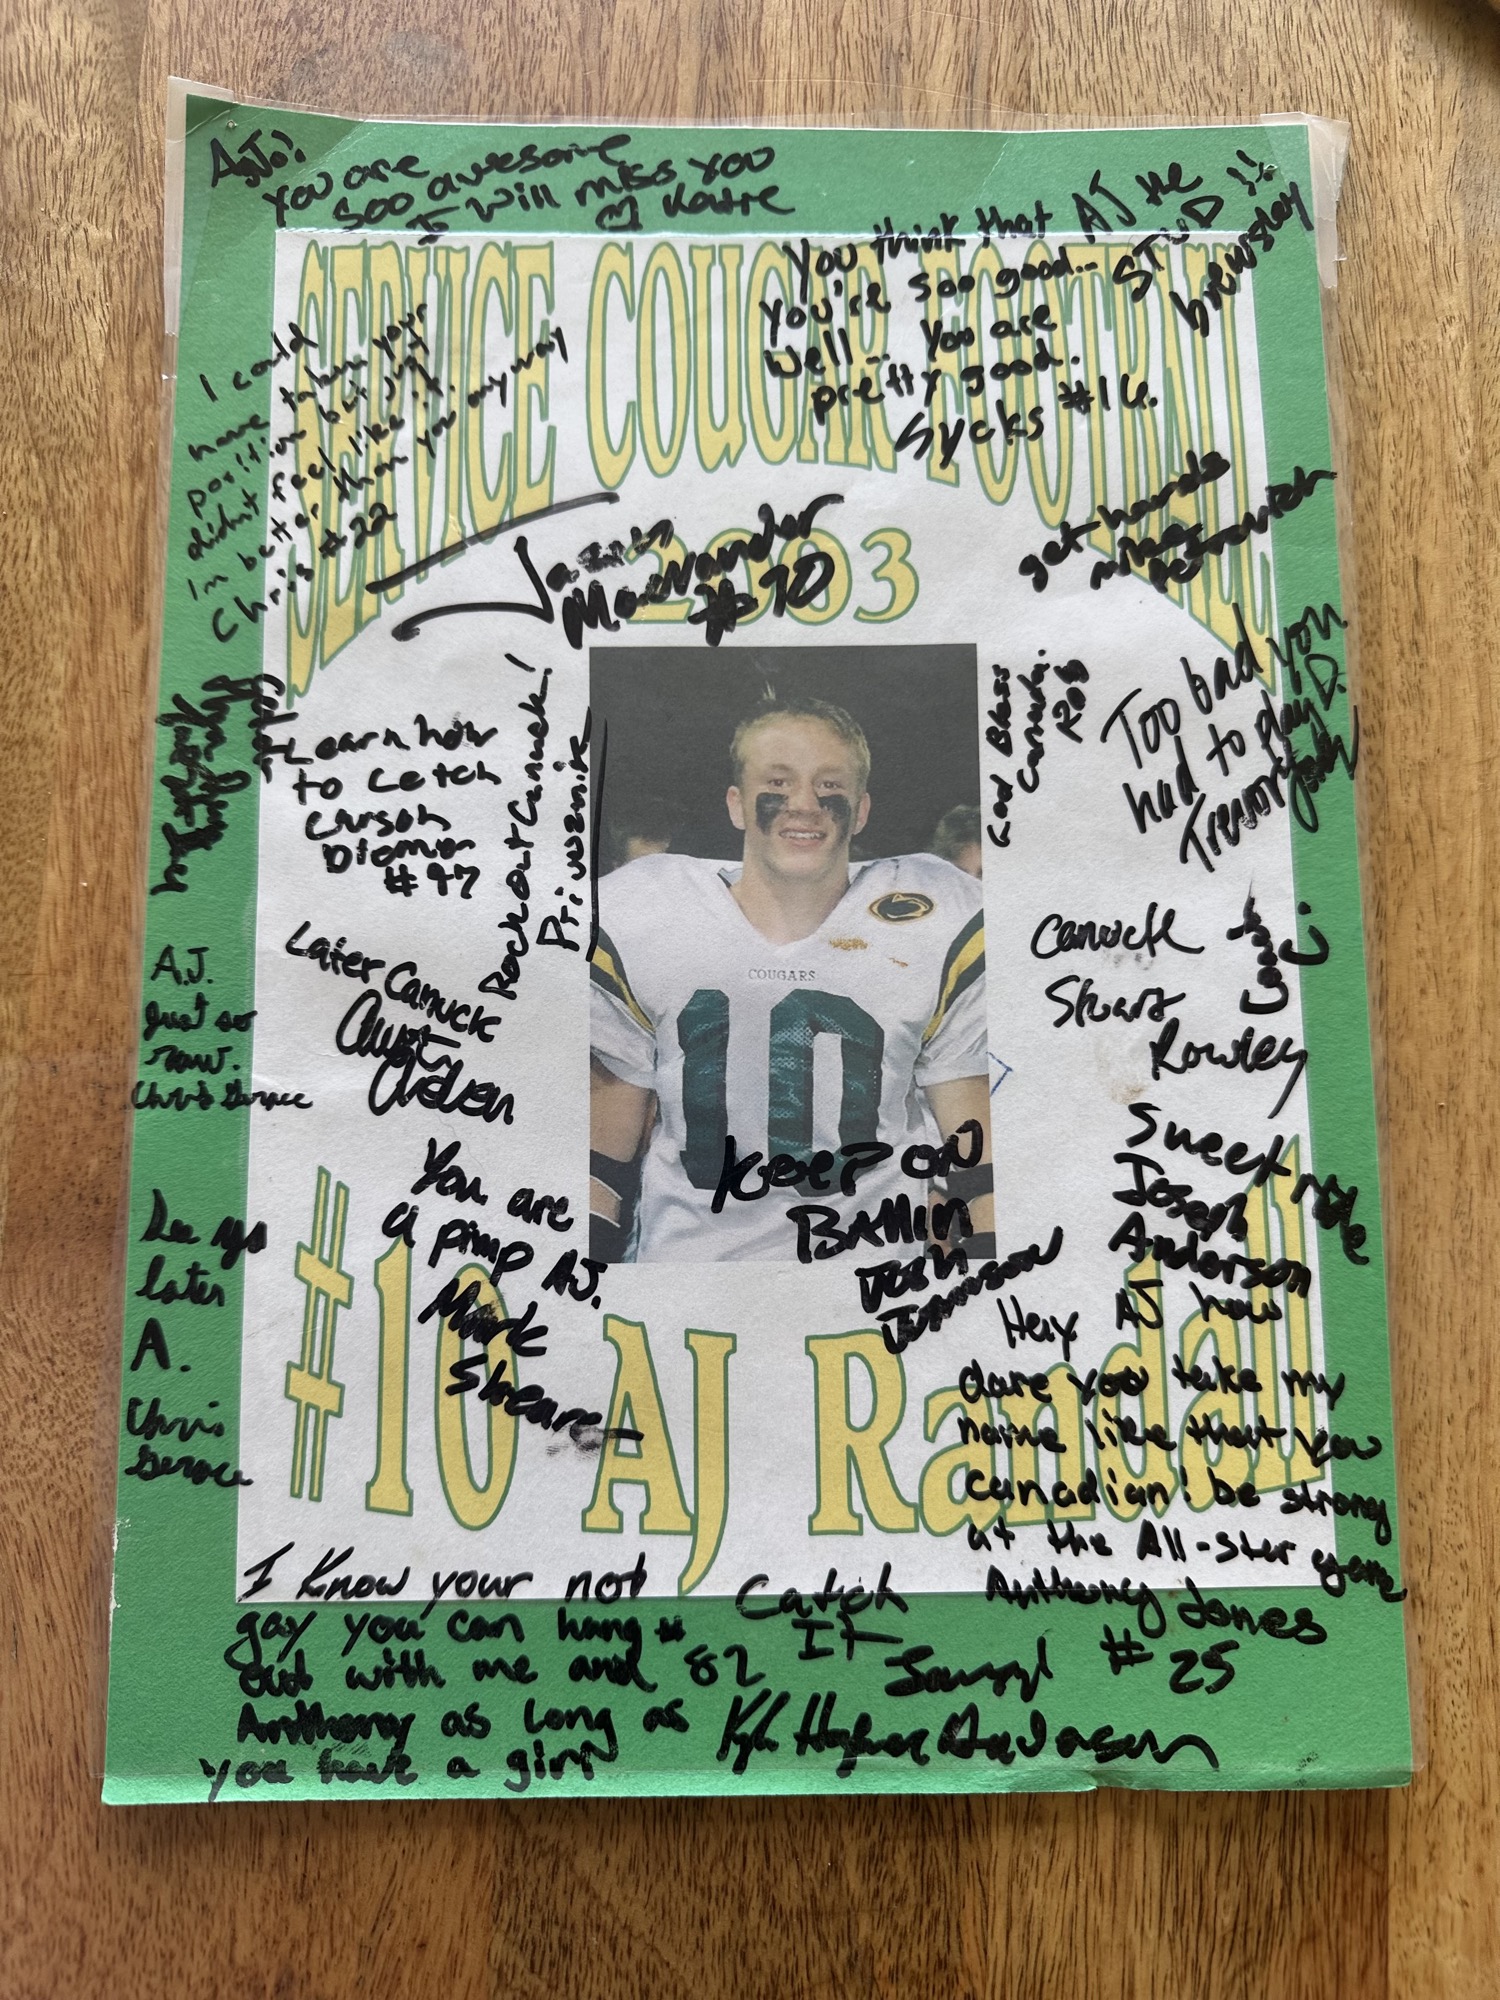 A.J.!
You are
soo awesome
I will miss you
Katie
You think that
you're soo good...
Well... You are
pretty good.
Sycks #16.
AJ the
STUD!!
brewsley
SERVICE COUGAR FOOTBALL
2003
I could
have taken your
position but just
didn't feel like it.
Im better than you anyway
Chris #22
James
#70
get hands
Learn how
to catch
Carson
#47
Rock out Canuck!
God Bless
Canada.
Rob
Too bad you
had to play D.
Trevor
COUGARS
10
Later Canuck
A.J.
Just so
raw.
Chris Gerace
Canuck
Stuart
Rowley
You are
a pimp AJ.
Mark
Shearer
Keep on
Ballin
Josh
Johnson
Sweet
Joseph
Anderson
See ya
later
A.
Chris
Gerace
#10 AJ Randall
Hey AJ how
dare you take my
name like that you
canadian! be strong
at the All-Star game
Anthony Jones
#25
I know your not
gay you can hang
out with me and 82
Anthony as long as
you have a girl
Catch
It
Kyle